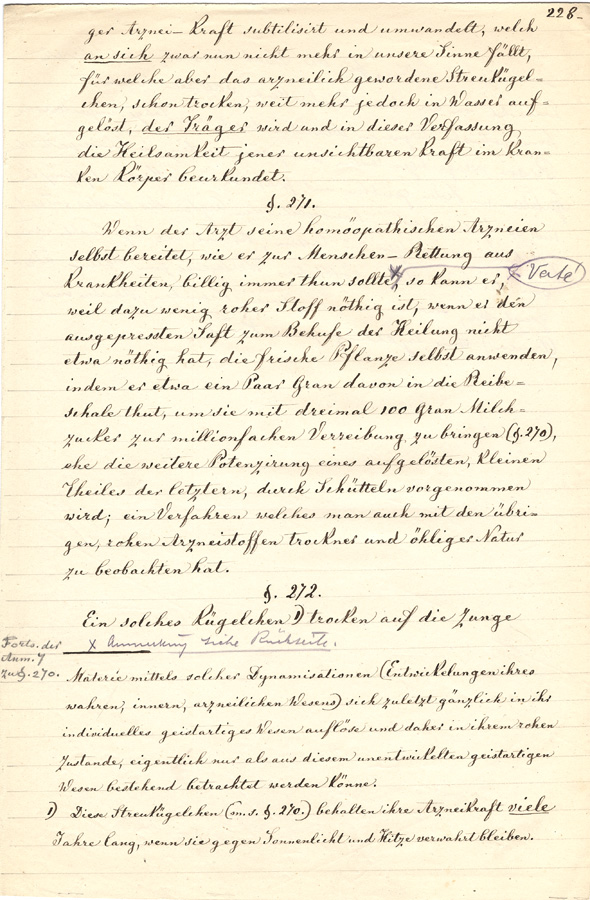 228-
ger Arznei-Kraft subtilisirt und umwandelt, welch
an sich zwar nun nicht mehr in unsere Sinne fällt,
für welche aber das arzneilich gewordene Streukügel=
chen, schon trocken, weit mehr jedoch in Wasser auf=
gelöst, der Träger wird und in dieser Verfassung
die Heilsamkeit jener unsichtbaren Kraft im kran=
ken Körper beurkundet.
§. 271.
Wenn der Arzt seine homöopathischen Arzneien
selbst bereitet, wie er zur Menschen-Rettung aus
Krankheiten, billig immer thun sollte, x so kann er, x
weil dazu wenig roher Stoff nöthig ist, wenn er den
ausgepressten Saft zum Behufe der Heilung nicht
etwa nöthig hat, die frische Pflanze selbst anwenden,
indem er etwa ein Paar Gran davon in die Reibe=
schale thut, um sie mit dreimal 100 Gran Milch=
zucker zur millionfachen Verreibung zu bringen (§. 270),
ehe die weitere Potenzirung eines aufgelösten, kleinen
Theiles der letztern, durch Schütteln vorgenommen
wird; ein Verfahren welches man auch mit den übri=
gen, rohen Arzneistoffen trockner und öhliger Natur
zu beobachten hat.
§. 272.
Ein solches Kügelchen 1) trocken auf die Zunge
x Anmerkung siehe Rückseite.
Forts. der
Anm. 7
zu §. 270.
Materie mittels solcher Dynamisationen (Entwickelungen ihres
wahren, innern, arzneilichen Wesens) sich zuletzt gänzlich in ihr
individuelles geistartiges Wesen auflöse und daher in ihrem rohen
Zustande, eigentlich nur als aus diesem unentwickelten geistartigen
Wesen bestehend betrachtet werden könne.
1) Diese Streukügelchen (m. s. §. 270.) behalten ihre Arzneikraft viele
Jahre lang, wenn sie gegen Sonnenlicht und Hitze verwahrt bleiben.